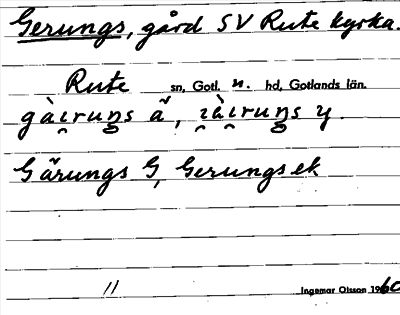 Gerungs, gård SV Rute kyrka.
Rute sn, Gotl. n. hd, Gotlands län.
gàiruŋs ä̃, ɿàiruŋs y.
Gärungs G, Gerungs ek
11 Ingemar Olsson 1960